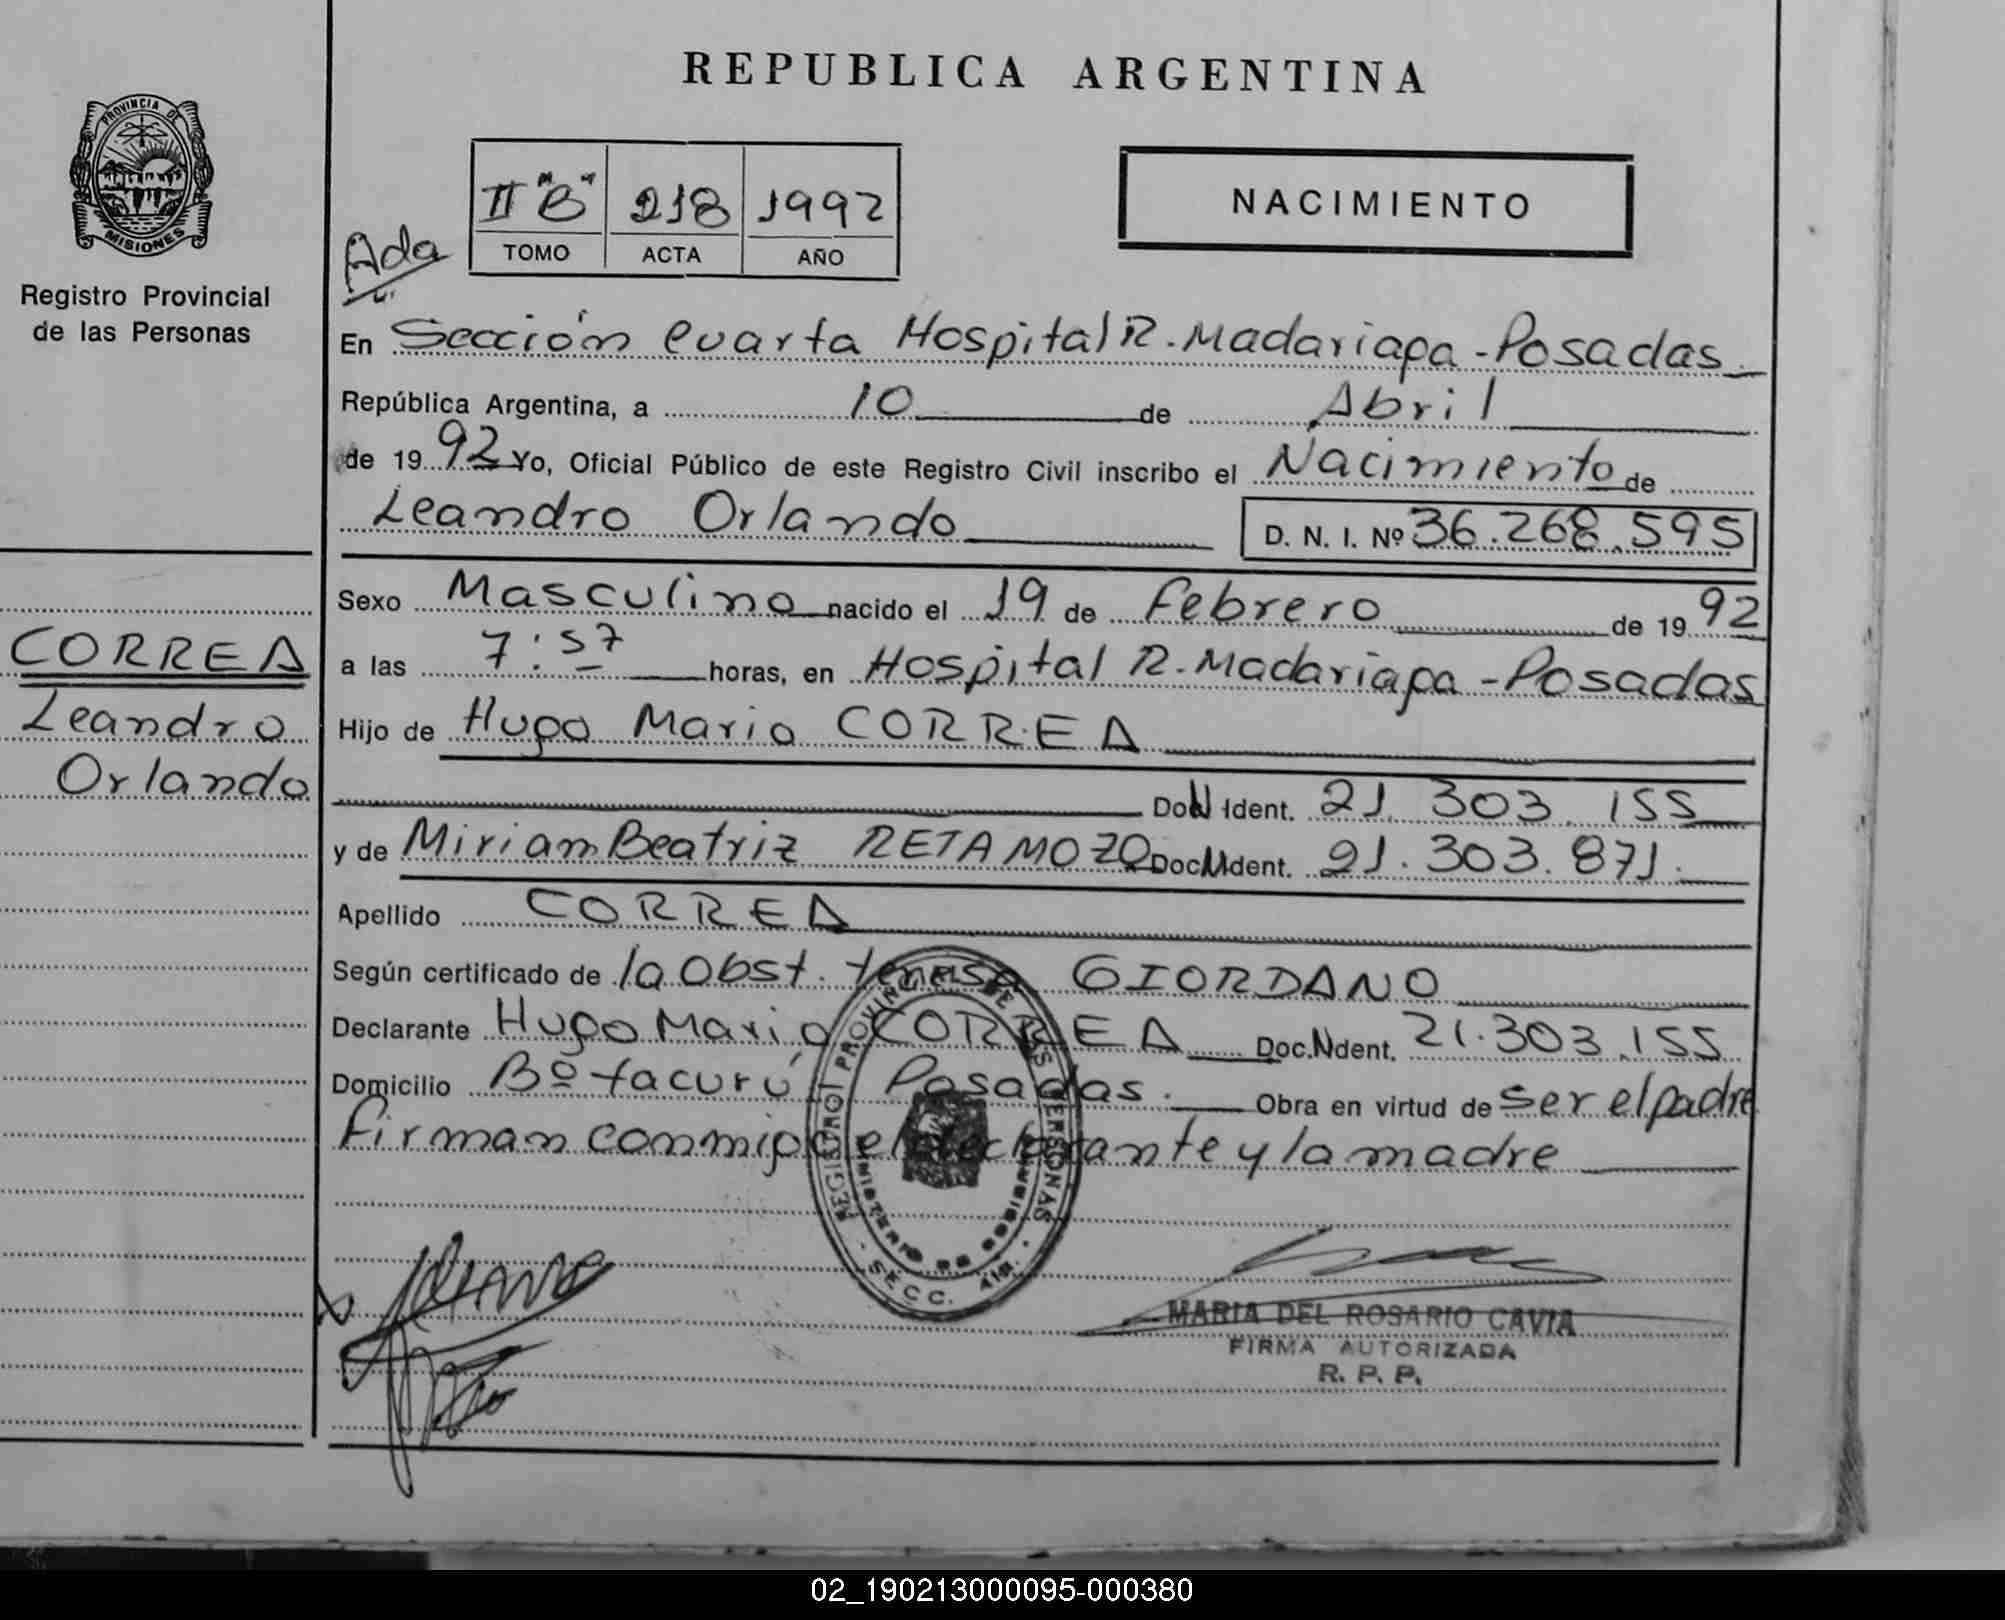 REPUBLICA ARGENTINA
PROVINCIA DE
MISIONES
Registro Provincial
de las Personas
II "B" 218 1992
TOMO ACTA AÑO
NACIMIENTO
Ada
En Sección Cuarta Hospital R. Madariaga - Posadas
República Argentina, a 10 de Abril
de 1992 Yo, Oficial Público de este Registro Civil inscribo el Nacimiento de
Leandro Orlando D. N. I. Nº 36.268.595
Sexo Masculino nacido el 19 de Febrero de 1992
a las 7:57 horas, en Hospital R. Madariaga - Posadas
Hijo de Hugo Mario CORREA
Doc. N Ident. 21.303.155
y de Miriam Beatriz RETAMOZO Doc. N Ident. 21.303.871.
Apellido CORREA
Según certificado de la Obst. teresa GIORDANO
Declarante Hugo Mario CORREA Doc. N Ident. 21.303.155
Domicilio Bº tacurú Posadas. Obra en virtud de ser el padre
Firman conmigo el declarante y la madre
CORREA
Leandro
Orlando
REGISTRO PROVINCIAL DE LAS PERSONAS
MINISTERIO DE GOBIERNO
SECC. 4ta.
MARIA DEL ROSARIO CAVIA
FIRMA AUTORIZADA
R. P. P.
02_190213000095-000380